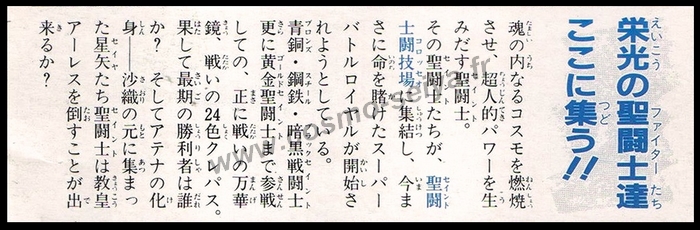 栄光の聖闘士達
ここに集う!!
魂の内なるコスモを燃焼
させ、超人的パワーを生
みだす聖闘士。
その聖闘士たちが、聖闘
士闘技場に集結し、今ま
さに命を賭けたスーパー
バトルロイヤルが開始さ
れようとしている。
青銅・鋼鉄・暗黒戦闘士
更に黄金聖闘士まで参戦
しての、正に戦いの万華
鏡、戦いの24色クレパス。
果して最期の勝利者は誰
か? そしてアテナの化
身——沙織の元に集まっ
た星矢たち聖闘士は教皇
アーレスを倒すことが出
来るか?
www.cosmo-seiya.fr